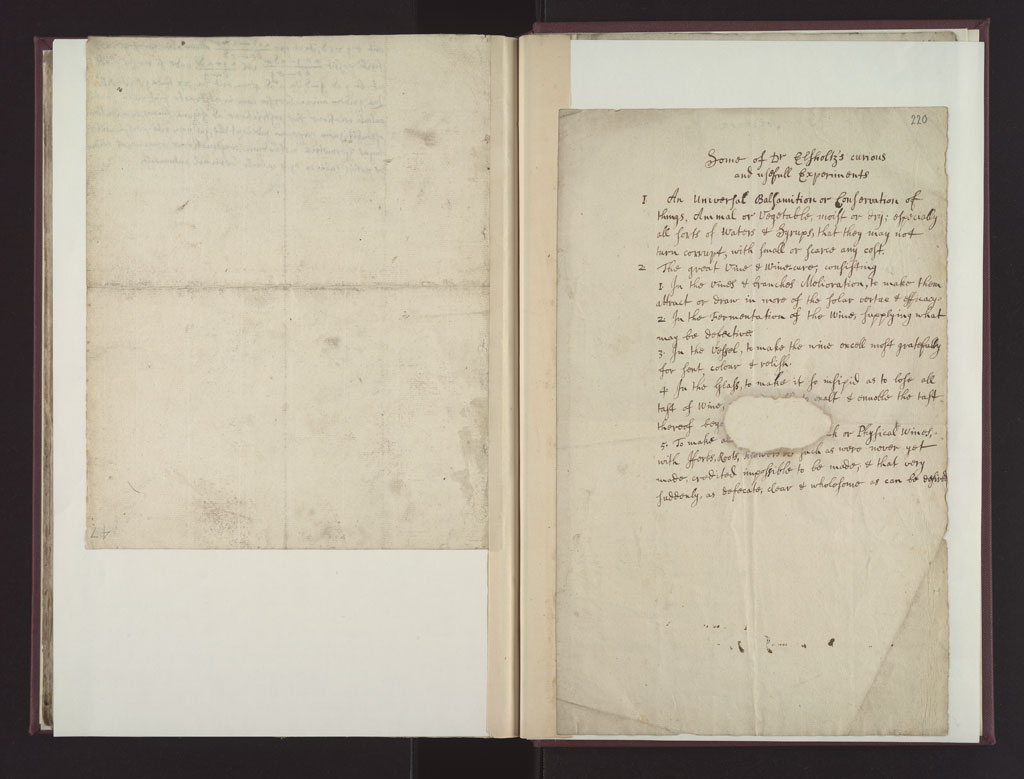 220
Some of Dr Elsholtz's curious
and usefull Experiments
1 An Universal Balsamition or Conservation of
things, Animal or Vegetable, moist or dry; especially
all sorts of Waters & Syrups, that they may not
turn corrupt, with small or scarce any cost.
2 The great Vine & Wine-cure, consisting
1 In the Vines & branches Melioration, to make them
attract or draw in more of the solar vertue & efficacy.
2 In the Fermentation of the Wine, supplying what
may be defective.
3. In the Vessel, to make the wine excell most gratefully
for sent, colour & relish.
4 In the Glass, to make it so insipid as to lose all
tast of Wine, exalt & ennoble the tast
thereof bey
5. To make or Physical Wines,
with Herbs, Roots, flowers or such as were never yet
made, credited impossible to be made, & that very
suddenly, as defecate, clear & wholesome as can be desired
47